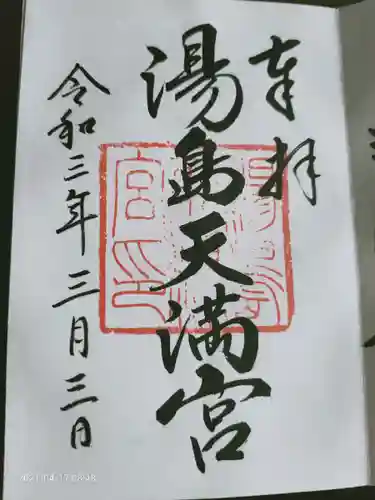 奉拝
湯島天満宮
令和三年三月三日